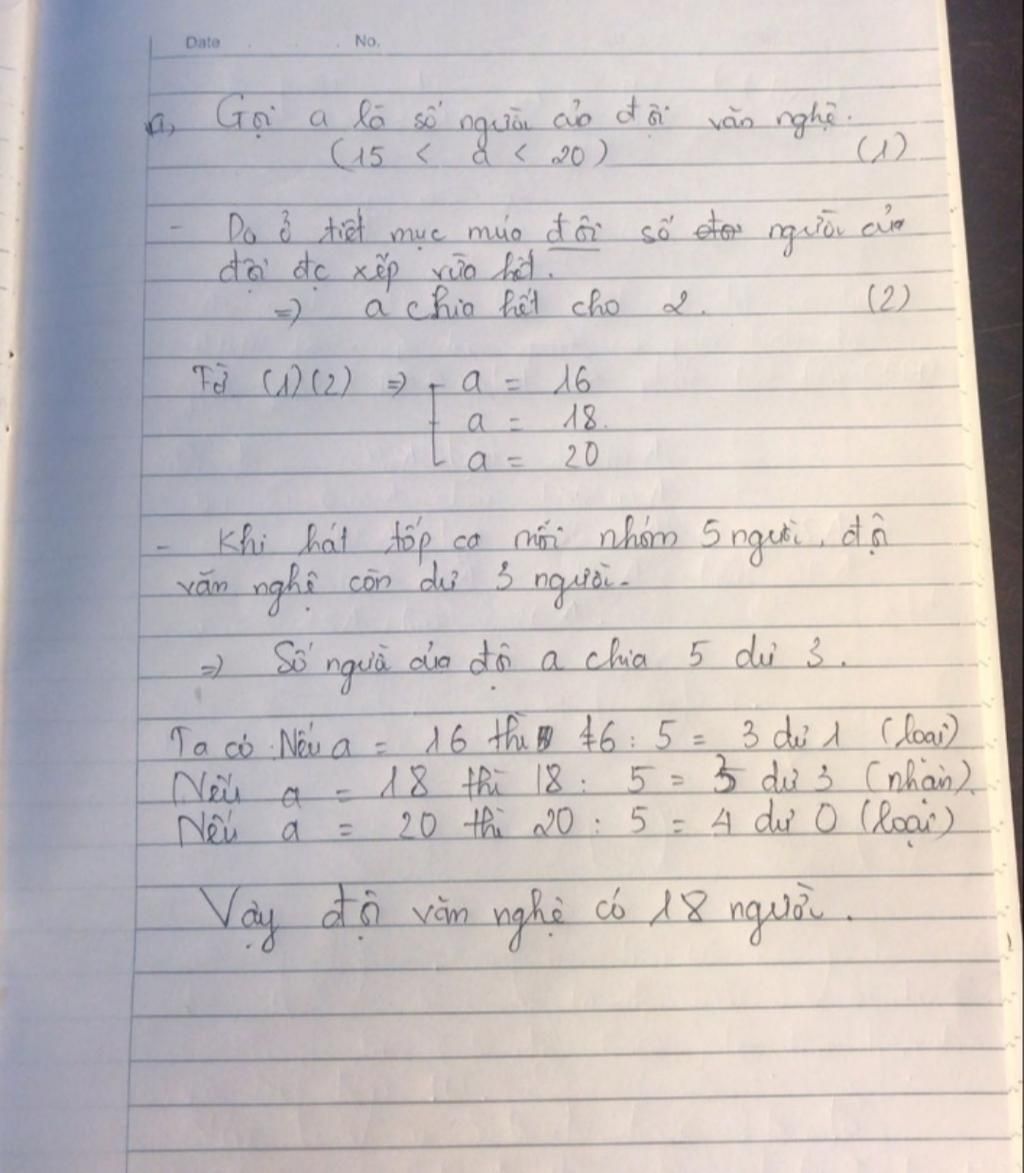 Date . . No.
a, Gọi a là số người của đội văn nghệ.
(15 < a < 20) (1)
- Do ở tiết mục múa đôi số người của
đội đc xếp vừa hết.
=) a chia hết cho 2. (2)
Từ (1)(2) => [ a = 16
a = 18.
a = 20
- Khi hát tốp ca mỗi nhóm 5 người, đội
văn nghệ còn dư 3 người.
=) Số người của đội a chia 5 dư 3.
Ta có. Nếu a = 16 thì 16 : 5 = 3 dư 1 (loại)
Nếu a = 18 thì 18 : 5 = 3 dư 3 (nhận).
Nếu a = 20 thì 20 : 5 = 4 dư 0 (loại)
Vậy đội văn nghệ có 18 người.